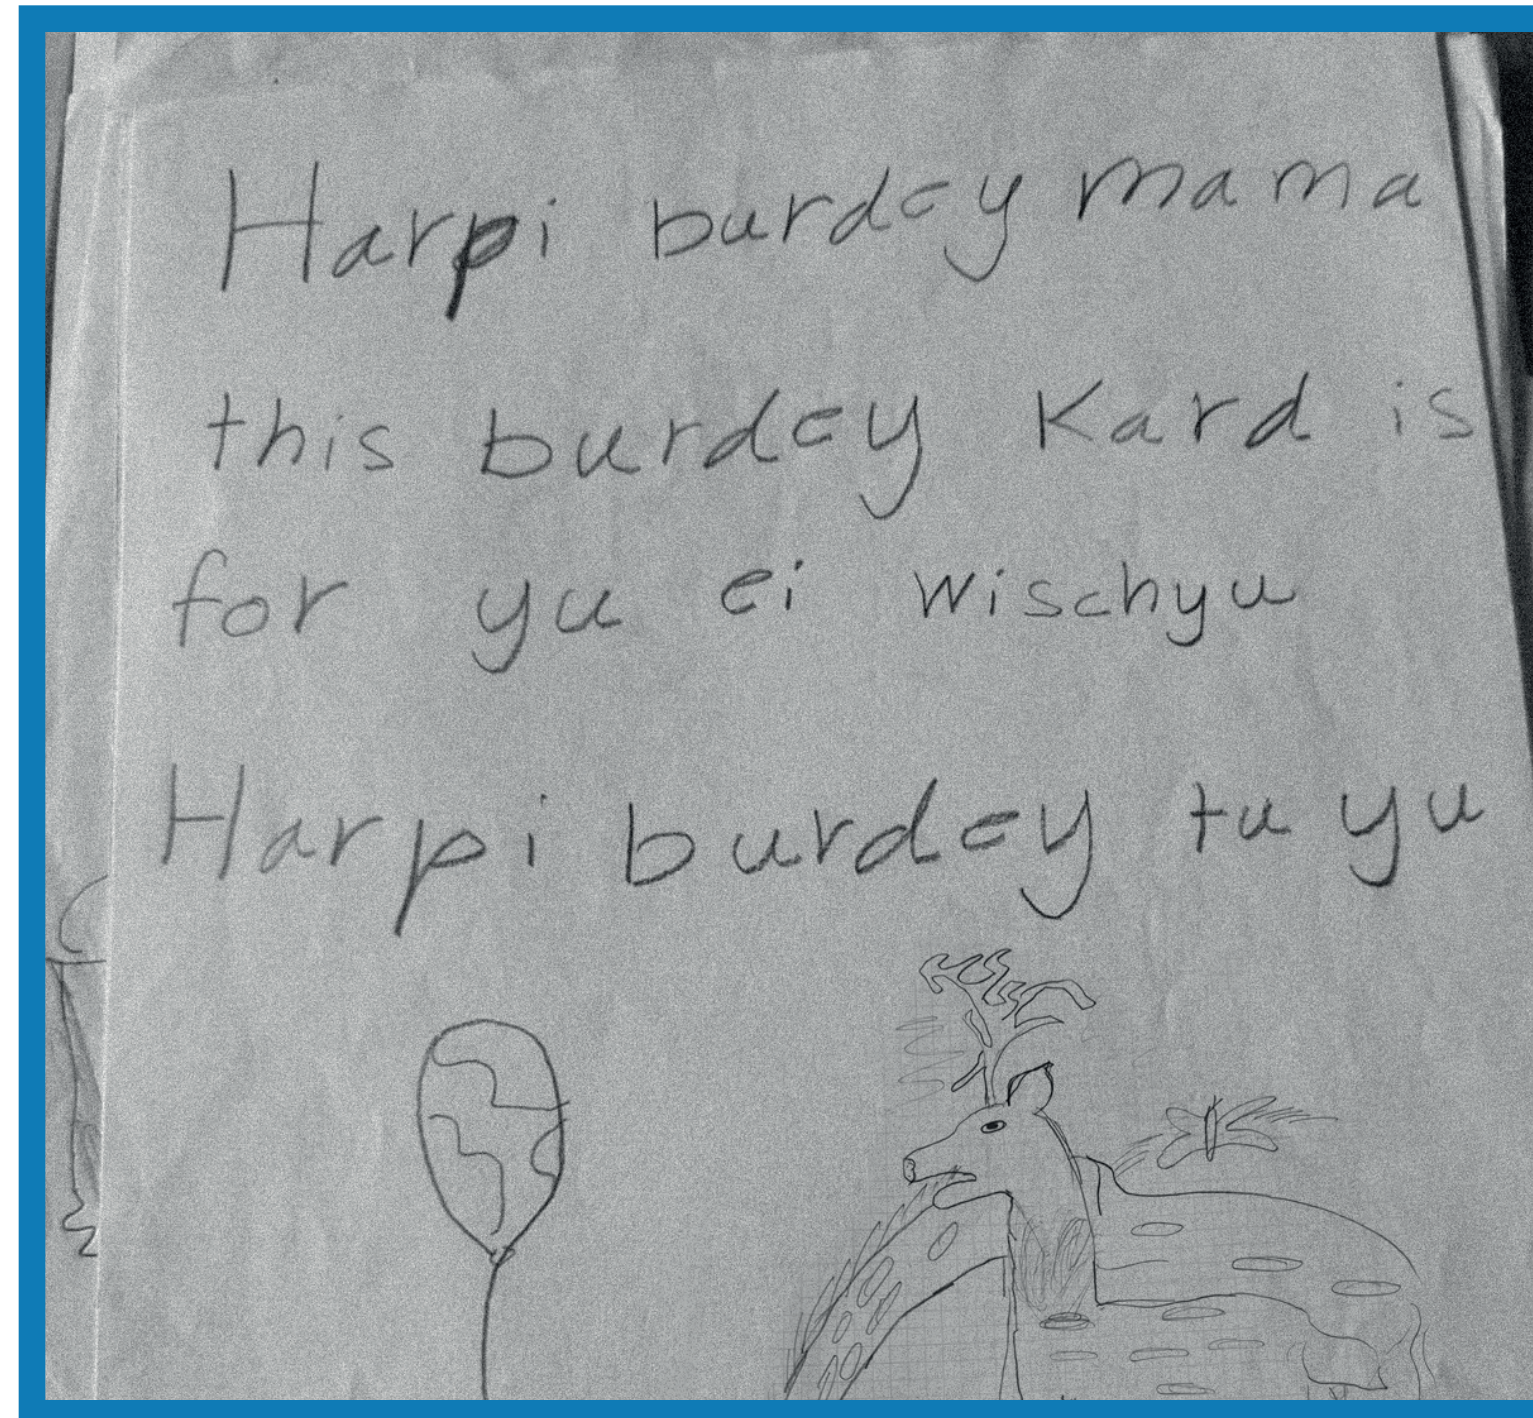 Harpi burdey mama
this burdey Kard is
for yu ei wischyu
Harpi burdey tu yu